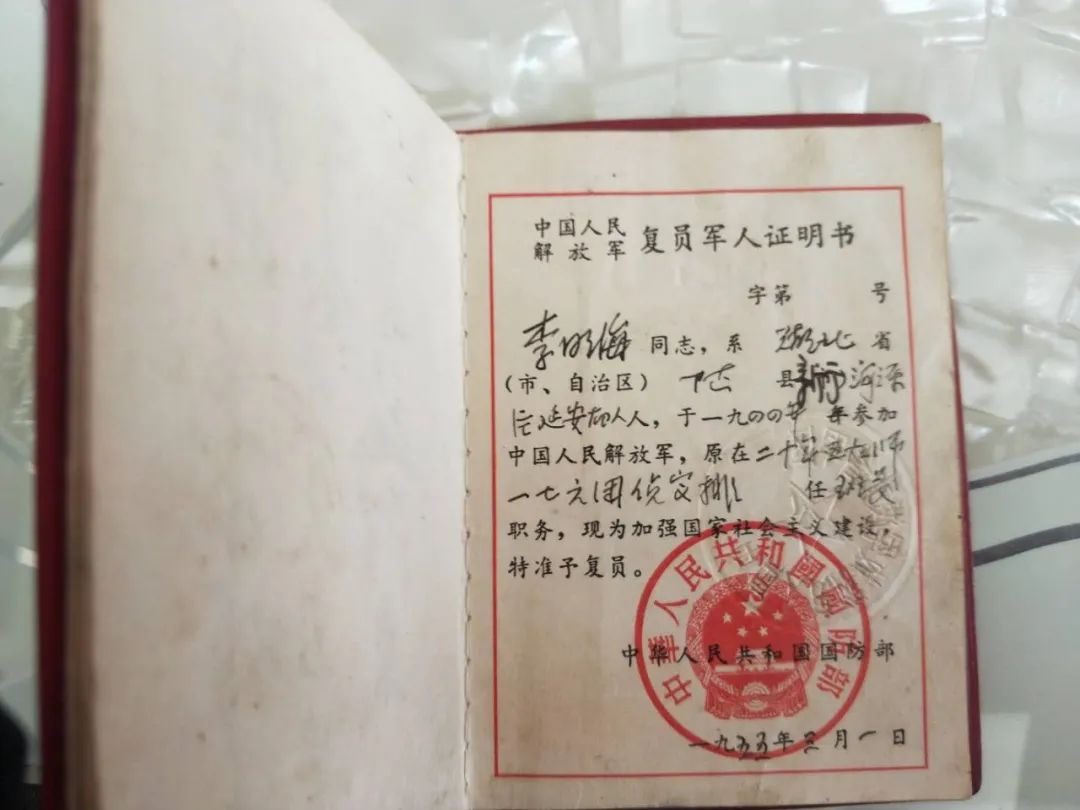 中国人民
解放军 复员军人证明书
字第 号
李明海 同志，系 湖北 省
（市、自治区） 县 河源
延安 人，于一九四四年 年参加
中国人民解放军，原在二十军五十八师
一七六团侦察排 任班长
职务，现为加强国家社会主义建设，
特准予复员。
中华人民共和國國防部
中华人民共和国国防部
一九五五年三月一日